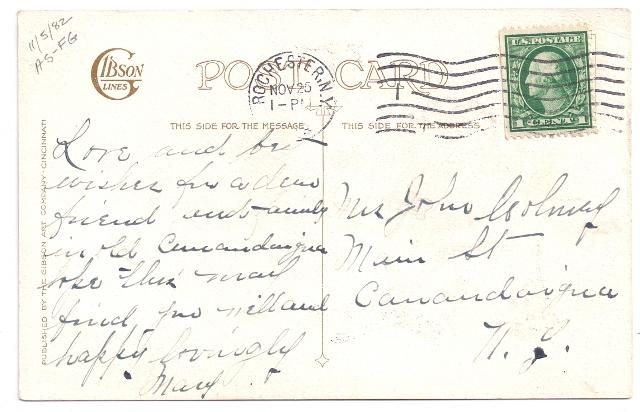 11/5/82
AS-FG
GIBSON
LINES
POST CARD
ROCHESTER, N.Y.
NOV 25
1-PM
U.S. POSTAGE
1 CENT 1
THIS SIDE FOR THE MESSAGE
THIS SIDE FOR THE ADDRESS
PUBLISHED BY THE GIBSON ART COMPANY, CINCINNATI
Love and best
wishes for a dear
friend and family
in old Canandaigua
hope this may
find you well and
happy Lovingly
Mary
Mrs John
Main St
Canandaigua
N. Y.